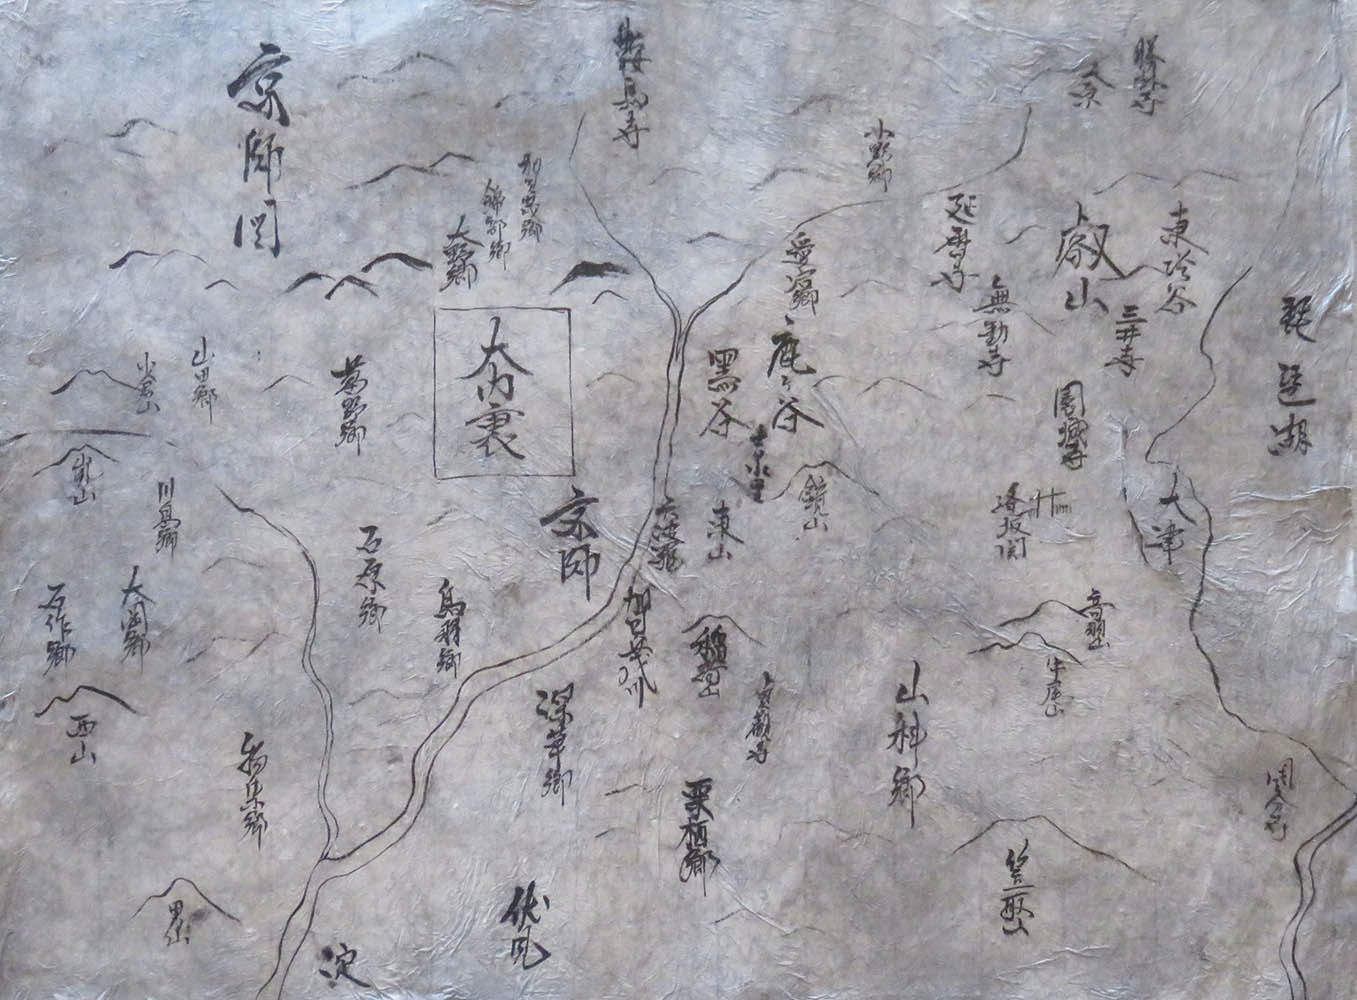 京師図
鞍馬寺
大原
勝林寺
小野郷
錦部郷
大野郷
愛宕郷
延暦寺
叡山
東塔谷
無動寺
三井寺
琵琶湖
小倉山
山田郷
葛野郷
大内裏
黒谷
鹿ヶ谷
園城寺
嵐山
川島郷
京師
六波羅
東山
鏡山
逢坂関
大津
石作郷
大岡郷
石原郷
鳥羽郷
加茂川
稲荷山
音羽山
牛尾山
西山
物集郷
深草郷
貞観寺
山科郷
栗栖郷
笠取山
男山
伏見
淀